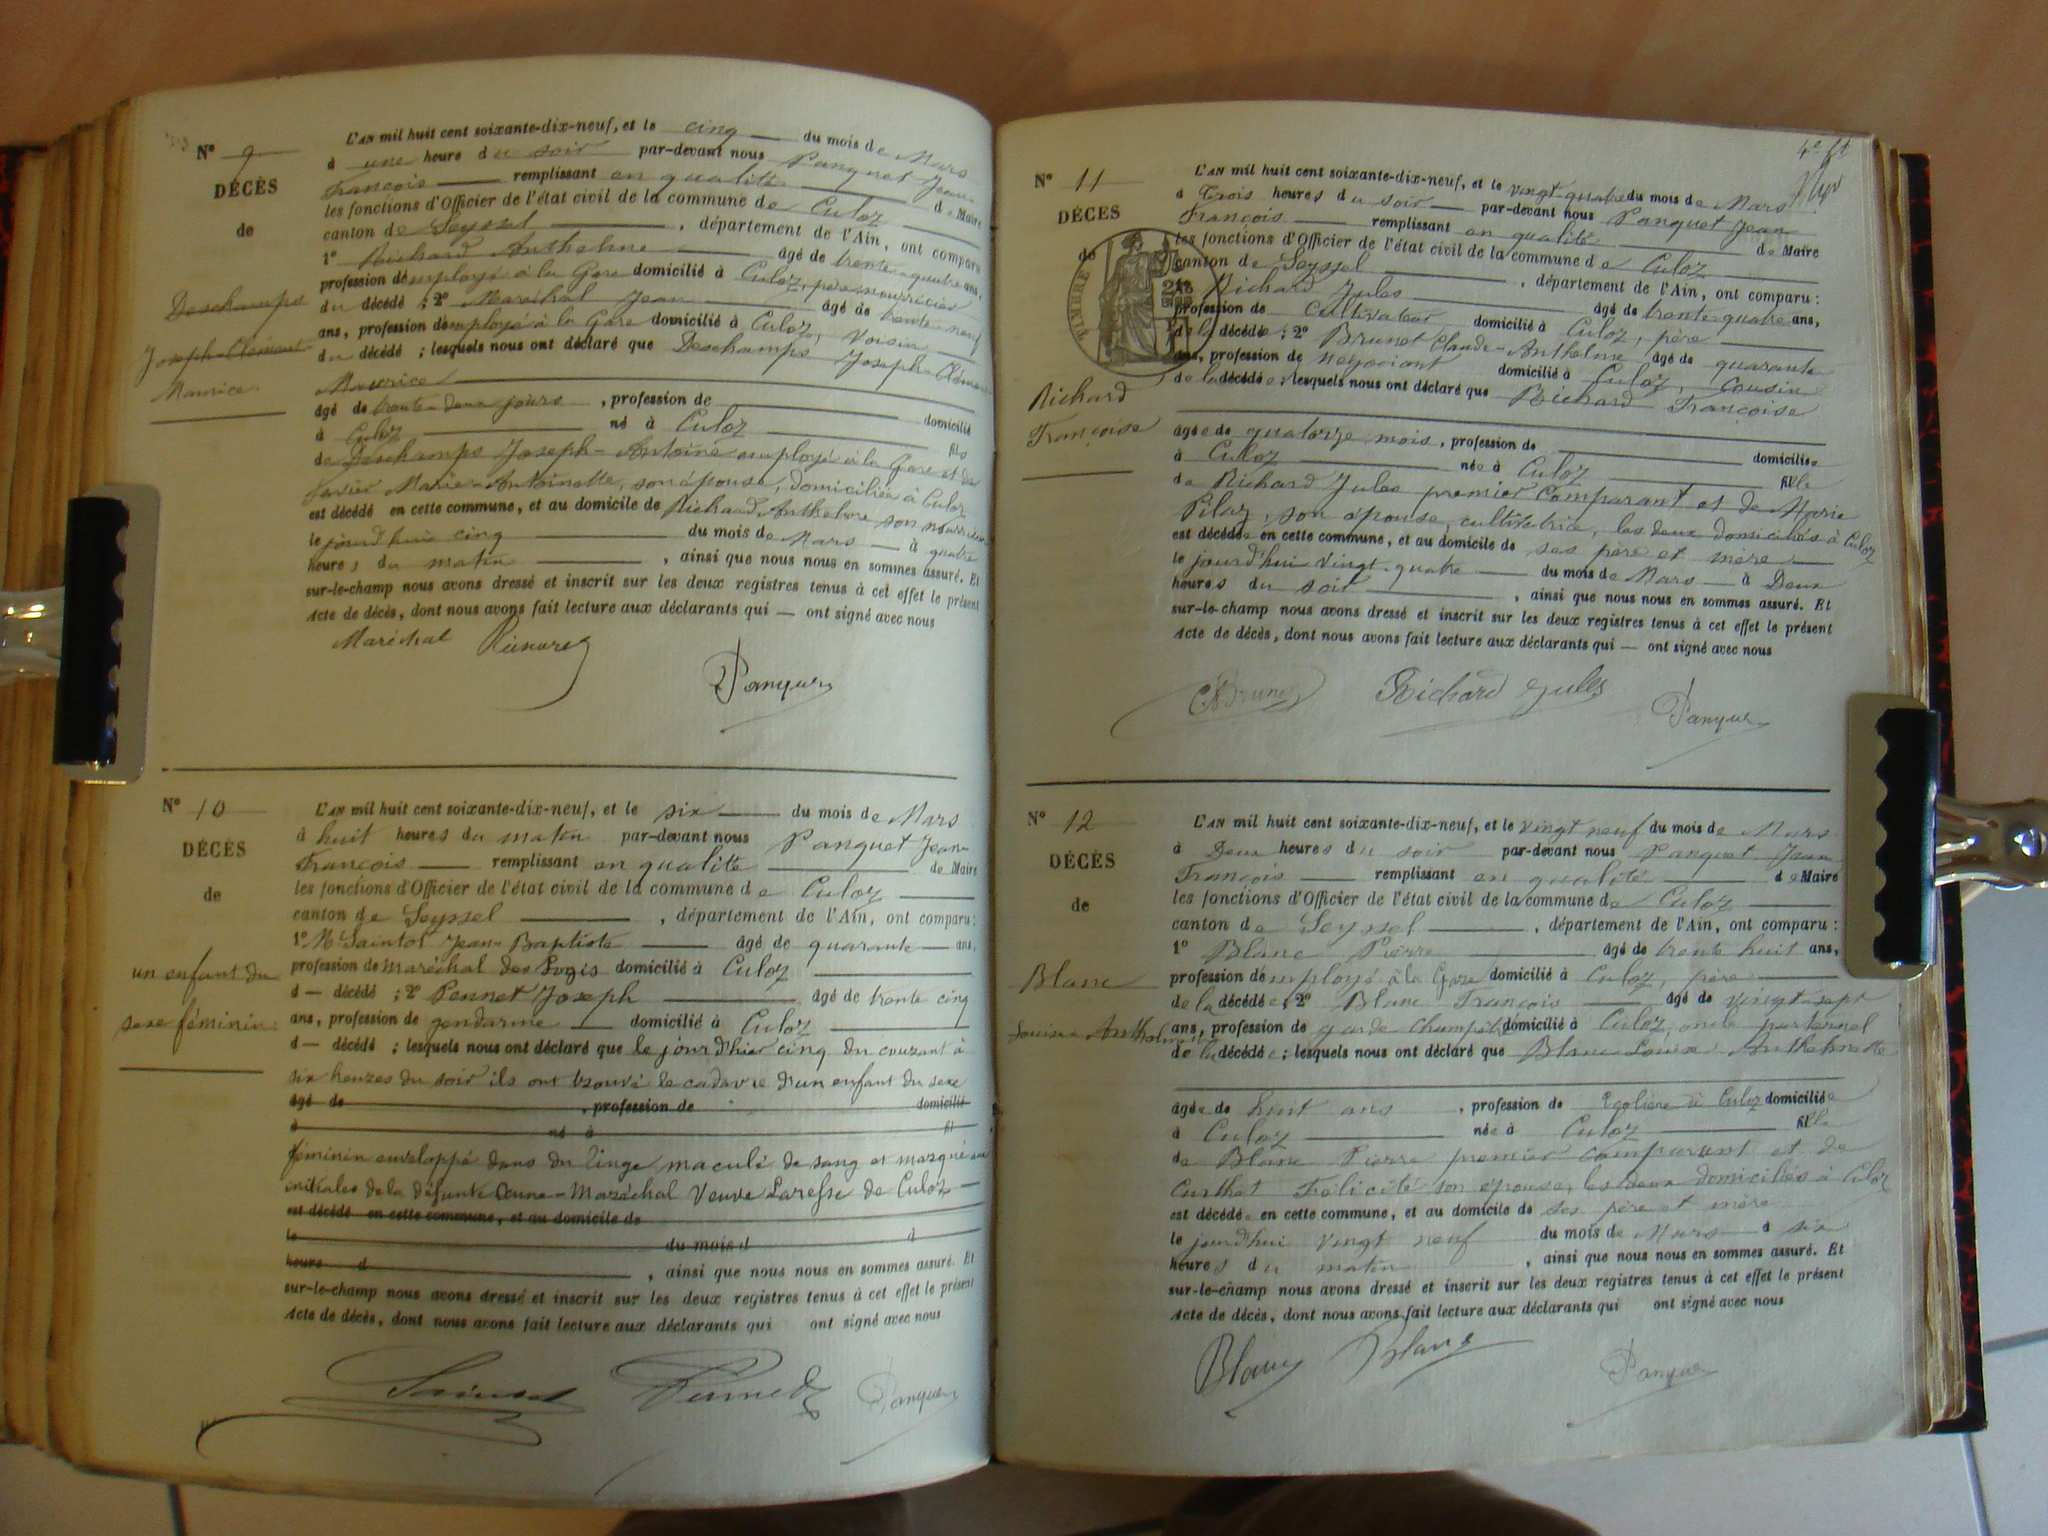 Nº 9
DÉCÈS
de
Deschamps
Joseph-Clément
Maurice
L'AN mil huit cent soixante-dix-neuf, et le cinq du mois de Mars
à une heure du soir par-devant nous Panquet Jean
François remplissant en qualité de Maire
les fonctions d'Officier de l'état civil de la commune de Culoz
canton de Seyssel, département de l'Ain, ont comparu
1º Richard Anthelme âgé de trente-quatre ans,
profession d'employé à la Gare domicilié à Culoz, père nourricier
du décédé ; 2º Maréchal Jean âgé de trente-neuf
ans, profession d'employé à la Gare domicilié à Culoz, voisin
du décédé ; lesquels nous ont déclaré que Deschamps Joseph-Clément
Maurice
âgé de trente-deux jours, profession de domicilié
à Culoz né à Culoz fils
de Deschamps Joseph-Antoine employé à la Gare et de
Marie-Antoinette, son épouse, domiciliés à Culoz
est décédé en cette commune, et au domicile de Richard Anthelme son nourricier
le jourd'hui cinq du mois de Mars à quatre
heures du matin, ainsi que nous nous en sommes assuré. Et
sur-le-champ nous avons dressé et inscrit sur les deux registres tenus à cet effet le présent
Acte de décès, dont nous avons fait lecture aux déclarants qui — ont signé avec nous
Maréchal Panquet
Nº 10
DÉCÈS
de
un enfant du
sexe féminin
L'AN mil huit cent soixante-dix-neuf, et le six du mois de Mars
à huit heures du matin par-devant nous Panquet Jean
François remplissant en qualité de Maire
les fonctions d'Officier de l'état civil de la commune de Culoz
canton de Seyssel, département de l'Ain, ont comparu :
1º Mr Saintot Jean-Baptiste âgé de quarante ans,
profession de maréchal des Logis domicilié à Culoz
d — décédé ; 2º Pennet Joseph âgé de trente cinq
ans, profession de gendarme domicilié à Culoz
d — décédé ; lesquels nous ont déclaré que le jour d'hier cinq du courant à
six heures du soir ils ont trouvé le cadavre d'un enfant du sexe
âgé de , profession de domicilié
à né à fil
féminin enveloppé dans du linge maculé de sang et marqué aux
initiales de la défunte Maréchal Veuve de Culoz
est décédé en cette commune, et au domicile de
le du mois d à
heure d , ainsi que nous nous en sommes assuré. Et
sur-le-champ nous avons dressé et inscrit sur les deux registres tenus à cet effet le présent
Acte de décès, dont nous avons fait lecture aux déclarants qui ont signé avec nous
Pennet Panquet
4e ft
Nº 11
DÉCÈS
de
TIMBRE
Richard
Françoise
L'AN mil huit cent soixante-dix-neuf, et le vingt quatre du mois de Mars
à Trois heures du soir par-devant nous Panquet Jean
François remplissant en qualité de Maire
les fonctions d'Officier de l'état civil de la commune de Culoz
canton de Seyssel, département de l'Ain, ont comparu :
Richard Jules âgé de trente-quatre ans,
profession de cultivateur domicilié à Culoz, père
de la décédée ; 2º Brunet Claude-Anthelme âgé de quarante
ans, profession de négociant domicilié à Culoz, cousin
de la décédée ; lesquels nous ont déclaré que Richard Françoise
âgée de quatorze mois, profession de domiciliée
à Culoz née à Culoz fille
de Richard Jules premier comparant et de Marie
Pilaz, son épouse, cultivatrice, les deux domiciliés à Culoz
est décédée en cette commune, et au domicile de ses père et mère
le jourd'hui vingt quatre du mois de Mars à Deux
heures du soir, ainsi que nous nous en sommes assuré. Et
sur-le-champ nous avons dressé et inscrit sur les deux registres tenus à cet effet le présent
Acte de décès, dont nous avons fait lecture aux déclarants qui — ont signé avec nous
Brunet Richard Jules Panquet
Nº 12
DÉCÈS
de
Blanc
Louise Anthelmette
L'AN mil huit cent soixante-dix-neuf, et le vingt neuf du mois de Mars
à Deux heures du soir par-devant nous Panquet Jean
François remplissant en qualité de Maire
les fonctions d'Officier de l'état civil de la commune de Culoz
canton de Seyssel, département de l'Ain, ont comparu :
1º Blanc Pierre âgé de trente huit ans,
profession d'employé à la Gare domicilié à Culoz, père
de la décédée ; 2º Blanc François âgé de vingt-sept
ans, profession de garde champêtre domicilié à Culoz, oncle paternel
de la décédée ; lesquels nous ont déclaré que Blanc Louise Anthelmette
âgée de huit ans, profession de Ecolière à Culoz domiciliée
à Culoz née à Culoz fille
de Blanc Pierre premier comparant et de
Curthet Félicité son épouse, les deux domiciliés à Culoz
est décédée en cette commune, et au domicile de ses père et mère
le jourd'hui vingt neuf du mois de Mars à six
heures du matin, ainsi que nous nous en sommes assuré. Et
sur-le-champ nous avons dressé et inscrit sur les deux registres tenus à cet effet le présent
Acte de décès, dont nous avons fait lecture aux déclarants qui ont signé avec nous
Blanc Blanc Panquet